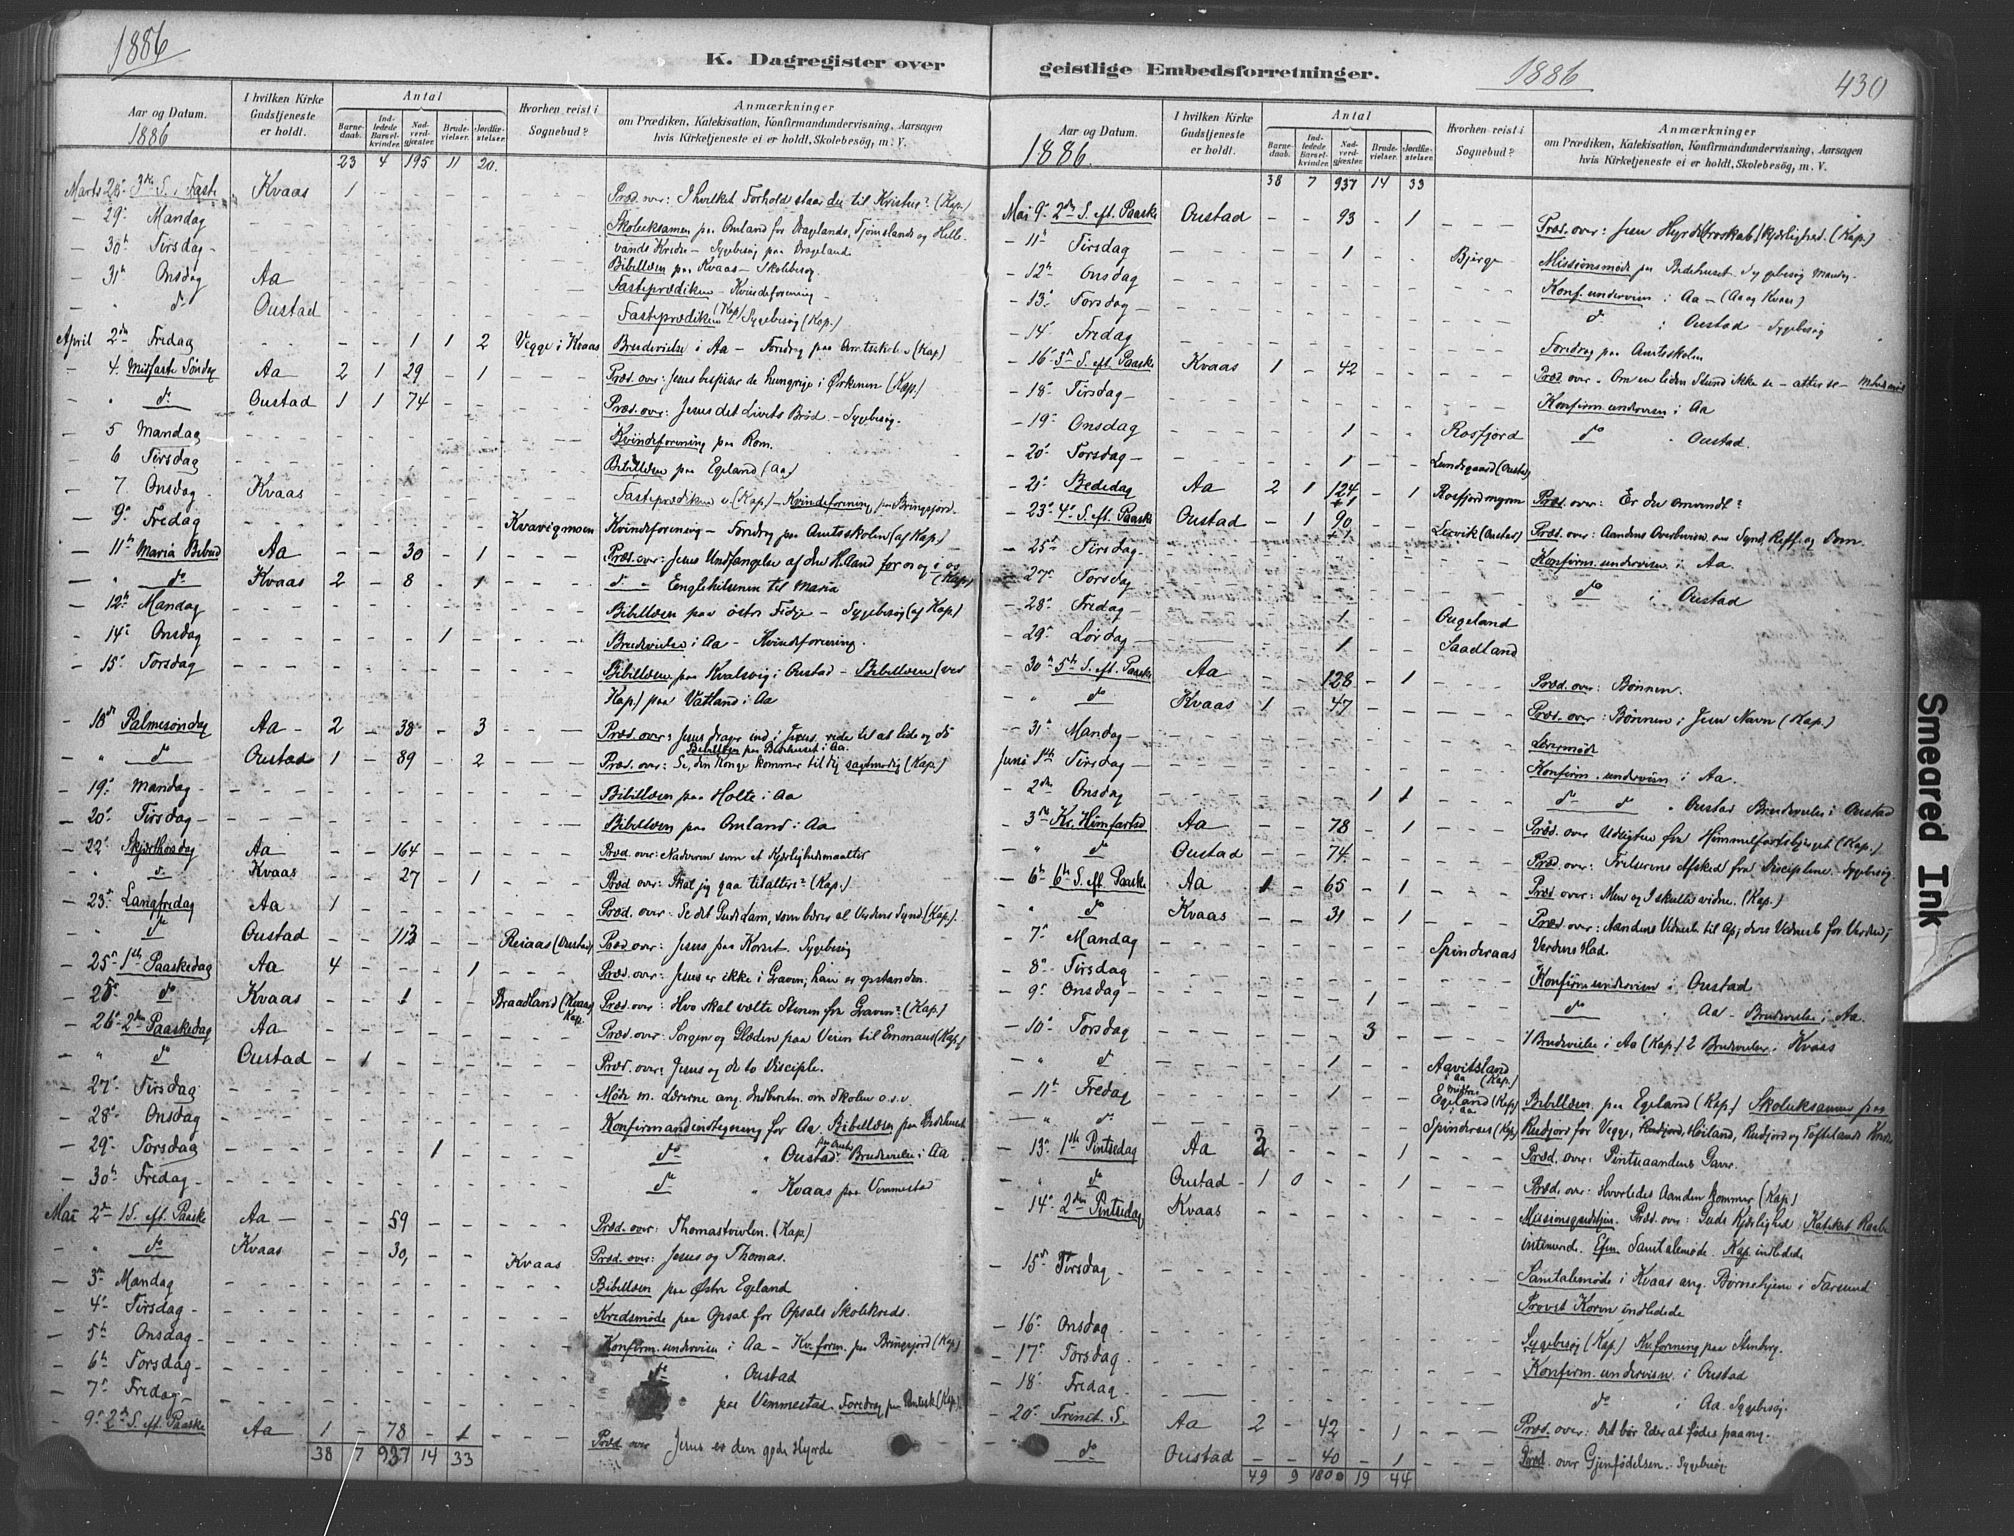 1886
K. Dagregister over
Aar og Datum.
1886
I hvilken Kirke Gudstjeneste er holdt.
Antal
Barnedaab.
Indledede Barselkvinder.
Nadverdgjæster.
Brudevielser.
Jordfæstelser.
Hvorhen reist i Sognebud?
Anmærkninger
om Prædiken, Katekisation, Konfirmandundervisning, Aarsagen
hvis Kirketjeneste ei er holdt, Skolebesøg, m. V.
23 4 195 11 20
Marts 28 3die S. i Faste Kvaas 1 Præd. over: I hvilket Forhold staar du til Kristus? (Kap)
29 Mandag Skoleeksamen paa Omland for Tjømslands og
30 Tirsdag vands Kredse - Sygebesøg paa
31 Onsdag Aa Bibellæsn paa Kvaas - Skolebesøg
" do Oustad Fasteprædiken - Kvindeforening
Fasteprædiken (Kap) Sygebesøg (Kap.)
April 2den Fredag 1 1 2 Vegge i Kvaas Brudevielse i Aa - Foredrag paa Amtsskolen (Kap)
4 Midfaste Søndag Aa 2 1 29 - 1 Præd. over: Jesus bespiser de hungrige i Ørkenen (Kap.)
" do Oustad 1 1 74 Præd. over: Jesus det Livets Brød - Sygebesøg.
5 Mandag Kvindeforening paa Rom.
6 Tirsdag Bibellæsn paa Egeland (Aa)
7 Onsdag Kvaas Fasteprædiken v. (Kap) - Kvindeforening paa Bringsjord
9 Fredag Kvavigmoen Kvindeforening - Foredrag paa Amtsskolen (af Kap.)
11 Maria Bebud Aa - - 30 - 1 Præd. over: Jesu Undfangelse af den Helland for os og i os (Kap)
" do Kvaas 2 - 8 - 1 do " Englehilsenen til Maria
12 Mandag Bibellæsn paa østre Fidje - Sygebesøg (af Kap)
14 Onsdag 1 Brudevielse i Aa - Kvindeforening.
15 Torsdag Bibellæsn paa Kvalsvig i Oustad - Bibellæsn (ved
Kap) paa Vatland i Aa
18 Palmesøndag Aa 2 - 38 - 3 Præd. over: Jesus drager ind i Jerus. rede til at lide og dø
Bibellæsn paa Bedehuset i Aa.
" do Oustad 1 - 89 - 2 Præd. over: Se, din Konge kommer til dig sagtmodig (Kap.)
19 Mandag Bibellæsn paa Holte i Aa
20 Tirsdag Bibellæsn paa Omland i Aa
22 Skjærthorsdag Aa - - 164 Præd. over: Nadveren som et Kjærlighedsmaaltid
" do Kvaas - - 27 - 1 Præd over: Skal jeg gaa til alters? (Kap.)
23 Langfredag Aa 1 Præd. over: Se det Guds Lam, som bærer al Verdens Synd (Kap).
" do Oustad - - 113 Reiaas (Oustad) Præd over: Jesus paa Korset. Sygebesøg
25 1ste Paaskedag Aa 4 - - - 1 Præd. over: Jesus er ikke i Graven; han er opstanden.
25 do Kvaas - - 1 Braadland (Kvaas) Kap. Præd. over: Hvo skal vælte Stenen fra Graven? (Kap.)
26 2den Paaskedag Aa Præd over: Sorgen og Glæden paa Veien til Emmaus (Kap.)
" do Oustad - 1 Præd. over: Jesus og de to Disciple.
27 Tirsdag Møde m. Lærerne ang. om Skolen o.s.v.
28 Onsdag Konfirmandindtegning for Aa. Bibellæsn paa Bedehuset
29 Torsdag 1 do " Oustad. Brudevielse i Aa
30 Fredag do " Kvaas paa Vemmestad
Mai 2den 1 S. eft. Paaske Aa - - 59 Præd. over: Thomastvivlen. (Kap)
" do Kvaas - - 30 Kvaas Præd. over: Jesus og Thomas.
3 Mandag Bibellæsn paa Østre Egeland
4 Tirsdag Kredsmøde paa Opsal for Opsals Skolekreds.
5 Onsdag Konfirm. undervisn i Aa - Kv. foren. paa Bringsjord (Kap)
6 Torsdag do " Oustad
7 Fredag paa Vemmestad Foredrag paa Amtssk. (Kap).
9 2den S. eft. Paaske Aa 1 - 78 - 1 Præd over Jesus er den gode Hyrde
38 7 937 14 33
geistlige Embedsforretninger. 1886 430
Aar og Datum.
1886.
I hvilken Kirke Gudstjeneste er holdt.
Antal
Barnedaab.
Indledede Barselkvinder.
Nadverdgjæster.
Brudevielser.
Jordfæstelser.
Hvorhen reist i Sognebud?
Anmærkninger
om Prædiken, Katekisation, Konfirmandundervisning, Aarsagen
hvis Kirketjeneste ei er holdt, Skolebesøg, m. V.
38 7 937 14 33
Mai 9 2den S. eft. Paaske Oustad - - 93 - 1 Præd. over: Jesu kjærlighed. (Kap.)
11 Tirsdag 1 Bjerge Missionsmøde paa Bedehuset Sygebesøg Mandag.
12 Onsdag Konf. undervisn i Aa - (Aa og Kvaas)
13 Torsdag do i Oustad - Sygebesøg
14 Fredag Foredrag paa Amtsskolen
16 3die S. eft. Paaske Kvaas 1 - 42 Præd over. Om en liden Stund ikke se - atter se -
18 Tirsdag Konfirm. undervisn i Aa
19 Onsdag 1 Rosfjord do " Oustad.
20 Torsdag 1 Lundegaard (Oustad)
21 Bededag Aa 2 1 124 +1 - 1 Rosfjordmyren Præd. over: Er du omvendt?
23 4de S. eft. Paaske Oustad - 1 90 +1 Lervik (Oustad) Præd. over: Aandens Overbevisn. om Synd, Retf. og Dom
25 Tirsdag Konfirm. undervisn i Aa.
27 Torsdag do i Oustad
28 Fredag 1 Ougeland
29 Lørdag 1 Saadland
30 5te S. eft. Paaske Aa - - 128 - 1 Præd. over: Bønnen.
" do Kvaas 1 - 47 Præd. over: Bønnen i Jesu Navn (Kap.)
31 Mandag Lærermøde
Juni 1ste Tirsdag Konfirm. undervisn i Aa.
2den Onsdag 1 1 do do " Oustad Brudevielse i Oustad
3die Kr. Himfartsd Aa - - 78 - 1 Præd. over Udsigten fra Himmelfartsbjerget (Kap.)
" do Oustad - - 74 Præd. over: Frelserens Afsked fra Disciplene. Sygebesøg.
6 6te S. eft. Paaske Aa 1 - 65 - 1 Præd over: Men og I skulle vidne. (Kap.)
" do Kvaas - - 31 - 1 Præd. over: Aandens Vidnesb. til Ap; deres Vidnesb. for Verden;
7 Mandag Spinderaas Verdens Had.
8 Tirsdag Konfirm. undervisn i Oustad
9 Onsdag 1 do " Aa - Brudevielse i Aa.
10 Torsdag 3 1 Brudevielse i Aa (Kap.) 2 Brudevielser i Kvaas
" do 1 Aavitsland i Aa (Kap.)
11 Fredag 1 Egeland (Kap) i Aa Bibellæsn. paa Egeland (Kap.) Skoleeksamen paa
" do Spinderaas (Kap) Rudjord for Vegge, Rudjord, Høiland, Rudjord og Toftelands Kredse
13 1ste Pintsedag Aa 3 - - - 1 Præd. over: Pintseaandens Gave.
" do Oustad 1 0 - - 1 Præd. over: Hvorledes Aanden kommer (Kap)
14 2den Pintsedag Kvaas Missionsgudstjen. Præd. over: Guds Kjærlighed
Samtalemøde. Kap. indledede
15 Tirsdag Samtalemøde i Kvaas ang. Børnehjem i Farsund
Provst Koren indledede
16 Onsdag Sygebesøg (Kap.) Kv. forening paa Stenberg.
17 Torsdag Konfirm. undervisn. i Oustad
18 Fredag do i Aa. Sygebesøg.
20 Trinit. S. Aa 2 - 42 - 1 Præd. over: Det bør Eder at fødes paany.
" do Oustad - - 40 - 1 Præd over Gjenfødelsen. - Sygebesøg
49 9 1800 19 44
Smeared Ink